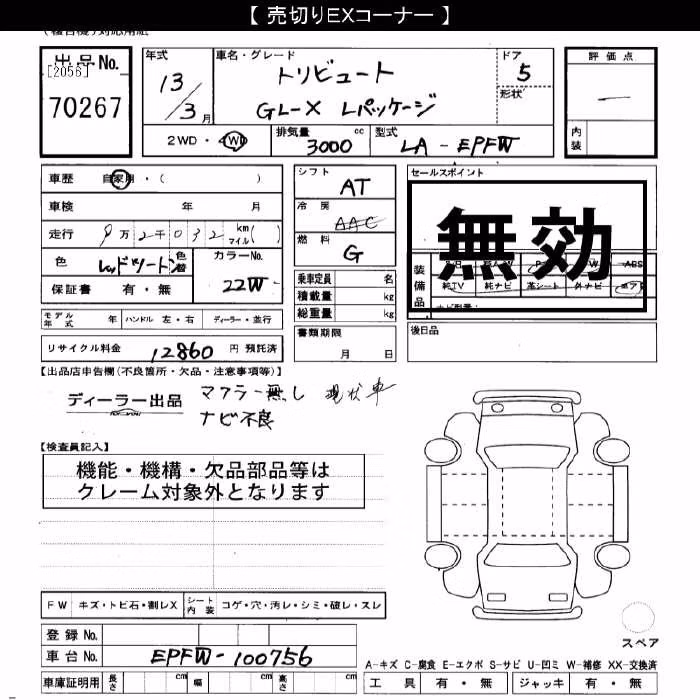 【 売切りEXコーナー 】
出品No.
[2056]
70267
年式
13/3月
車名・グレード
トリビュート
GL-X Lパッケージ
ドア
5
形状
評価点
内装
2WD・4WD
排気量
3000 cc
型式
LA-EPFW
車歴 自家用・( )
車検 年 月
走行 9万2千032 km マイル( )
色 レッドツートン 色替
カラーNo.
22W
保証書 有・無
シフト
AT
冷房
AAC
燃料
G
乗車定員 名
積載量 kg
総重量 kg
セールスポイント
無効
装備品
ABS
純TV 純ナビ 革シート 外ナビ エアB
モデル年式 年 ハンドル 左・右 ディーラー・並行
書類期限
月 日
後日品
リサイクル料金 12860 円 預託済
【出品店申告欄(不良箇所・欠品・注意事項等)】
ディーラー出品
マフラー無し 現状車
ナビ不良
【検査員記入】
機能・機構・欠品部品等は
クレーム対象外となります
FW キズ・トビ石・割レX シート内装 コゲ・穴・汚レ・シミ・破レ・スレ
登録No.
車台No. EPFW-100756
スペア
A-キズ C-腐食 E-エクボ S-サビ U-凹ミ W-補修 XX-交換済
車庫証明用 長さ cm 幅 cm 高さ cm
工具 有・無 ジャッキ 有・無